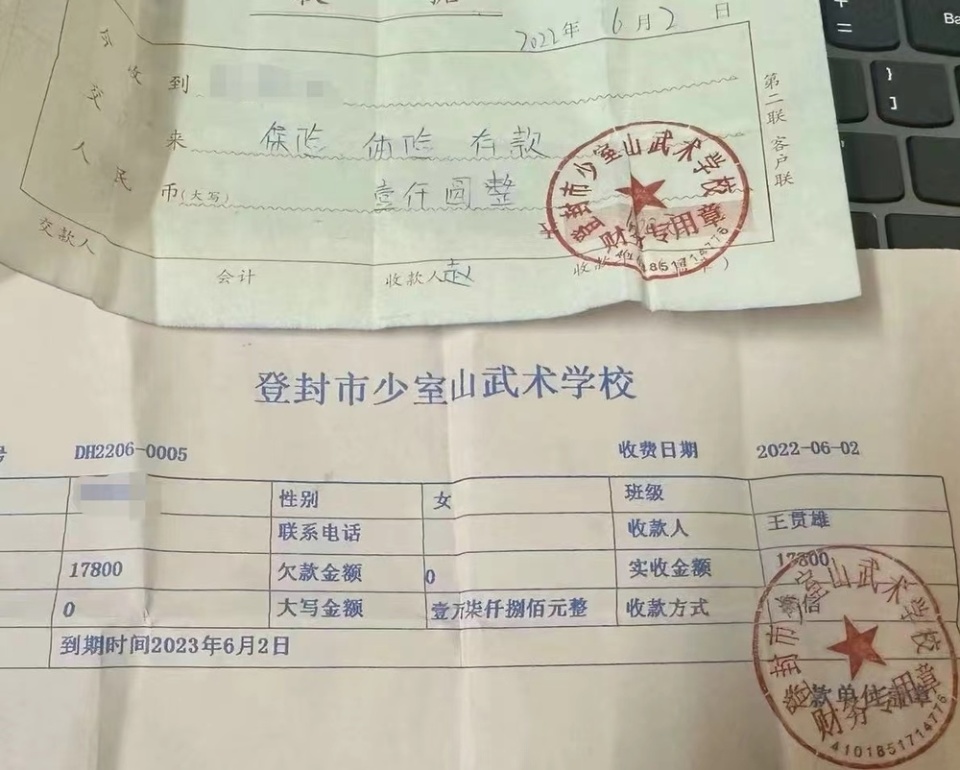 2022年 6月2日
今收到
交来 保险 体检 存款
人民币(大写) 壹仟圆整
第二联 客户联
登封市少室山武术学校
财务专用章
交款人
会计 收款人 赵 收款
登封市少室山武术学校
号 DH2206-0005 收费日期 2022-06-02
性别 女 班级
联系电话 收款人 王贯雄
17800 欠款金额 0 实收金额 17800
0 大写金额 壹万柒仟捌佰元整 收款方式 微信
到期时间2023年6月2日
登封市少室山武术学校
款单位盖章
财务专用章
4101851714776
Ba